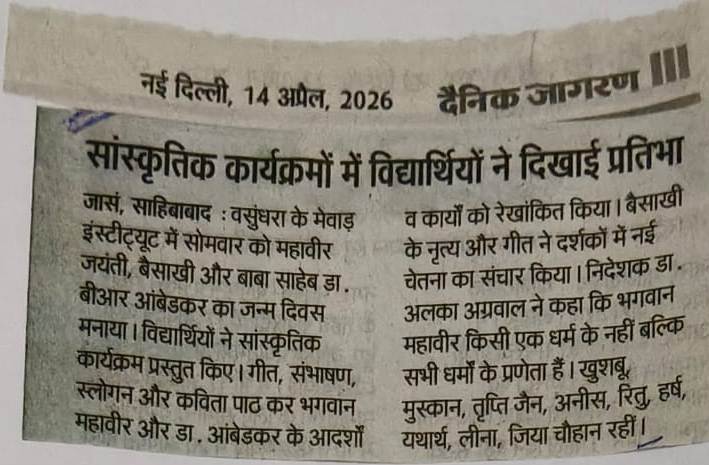 नई दिल्ली, 14 अप्रैल, 2026 दैनिक जागरण III
सांस्कृतिक कार्यक्रमों में विद्यार्थियों ने दिखाई प्रतिभा
जासं, साहिबाबाद : वसुंधरा के मेवाड़
इंस्टीट्यूट में सोमवार को महावीर
जयंती, बैसाखी और बाबा साहेब डा.
बीआर आंबेडकर का जन्म दिवस
मनाया। विद्यार्थियों ने सांस्कृतिक
कार्यक्रम प्रस्तुत किए। गीत, संभाषण,
स्लोगन और कविता पाठ कर भगवान
महावीर और डा. आंबेडकर के आदर्शों
व कार्यों को रेखांकित किया। बैसाखी
के नृत्य और गीत ने दर्शकों में नई
चेतना का संचार किया। निदेशक डा.
अलका अग्रवाल ने कहा कि भगवान
महावीर किसी एक धर्म के नहीं बल्कि
सभी धर्मों के प्रणेता हैं। खुशबू,
मुस्कान, तृप्ति जैन, अनीस, रितु, हर्ष,
यथार्थ, लीना, जिया चौहान रहीं।